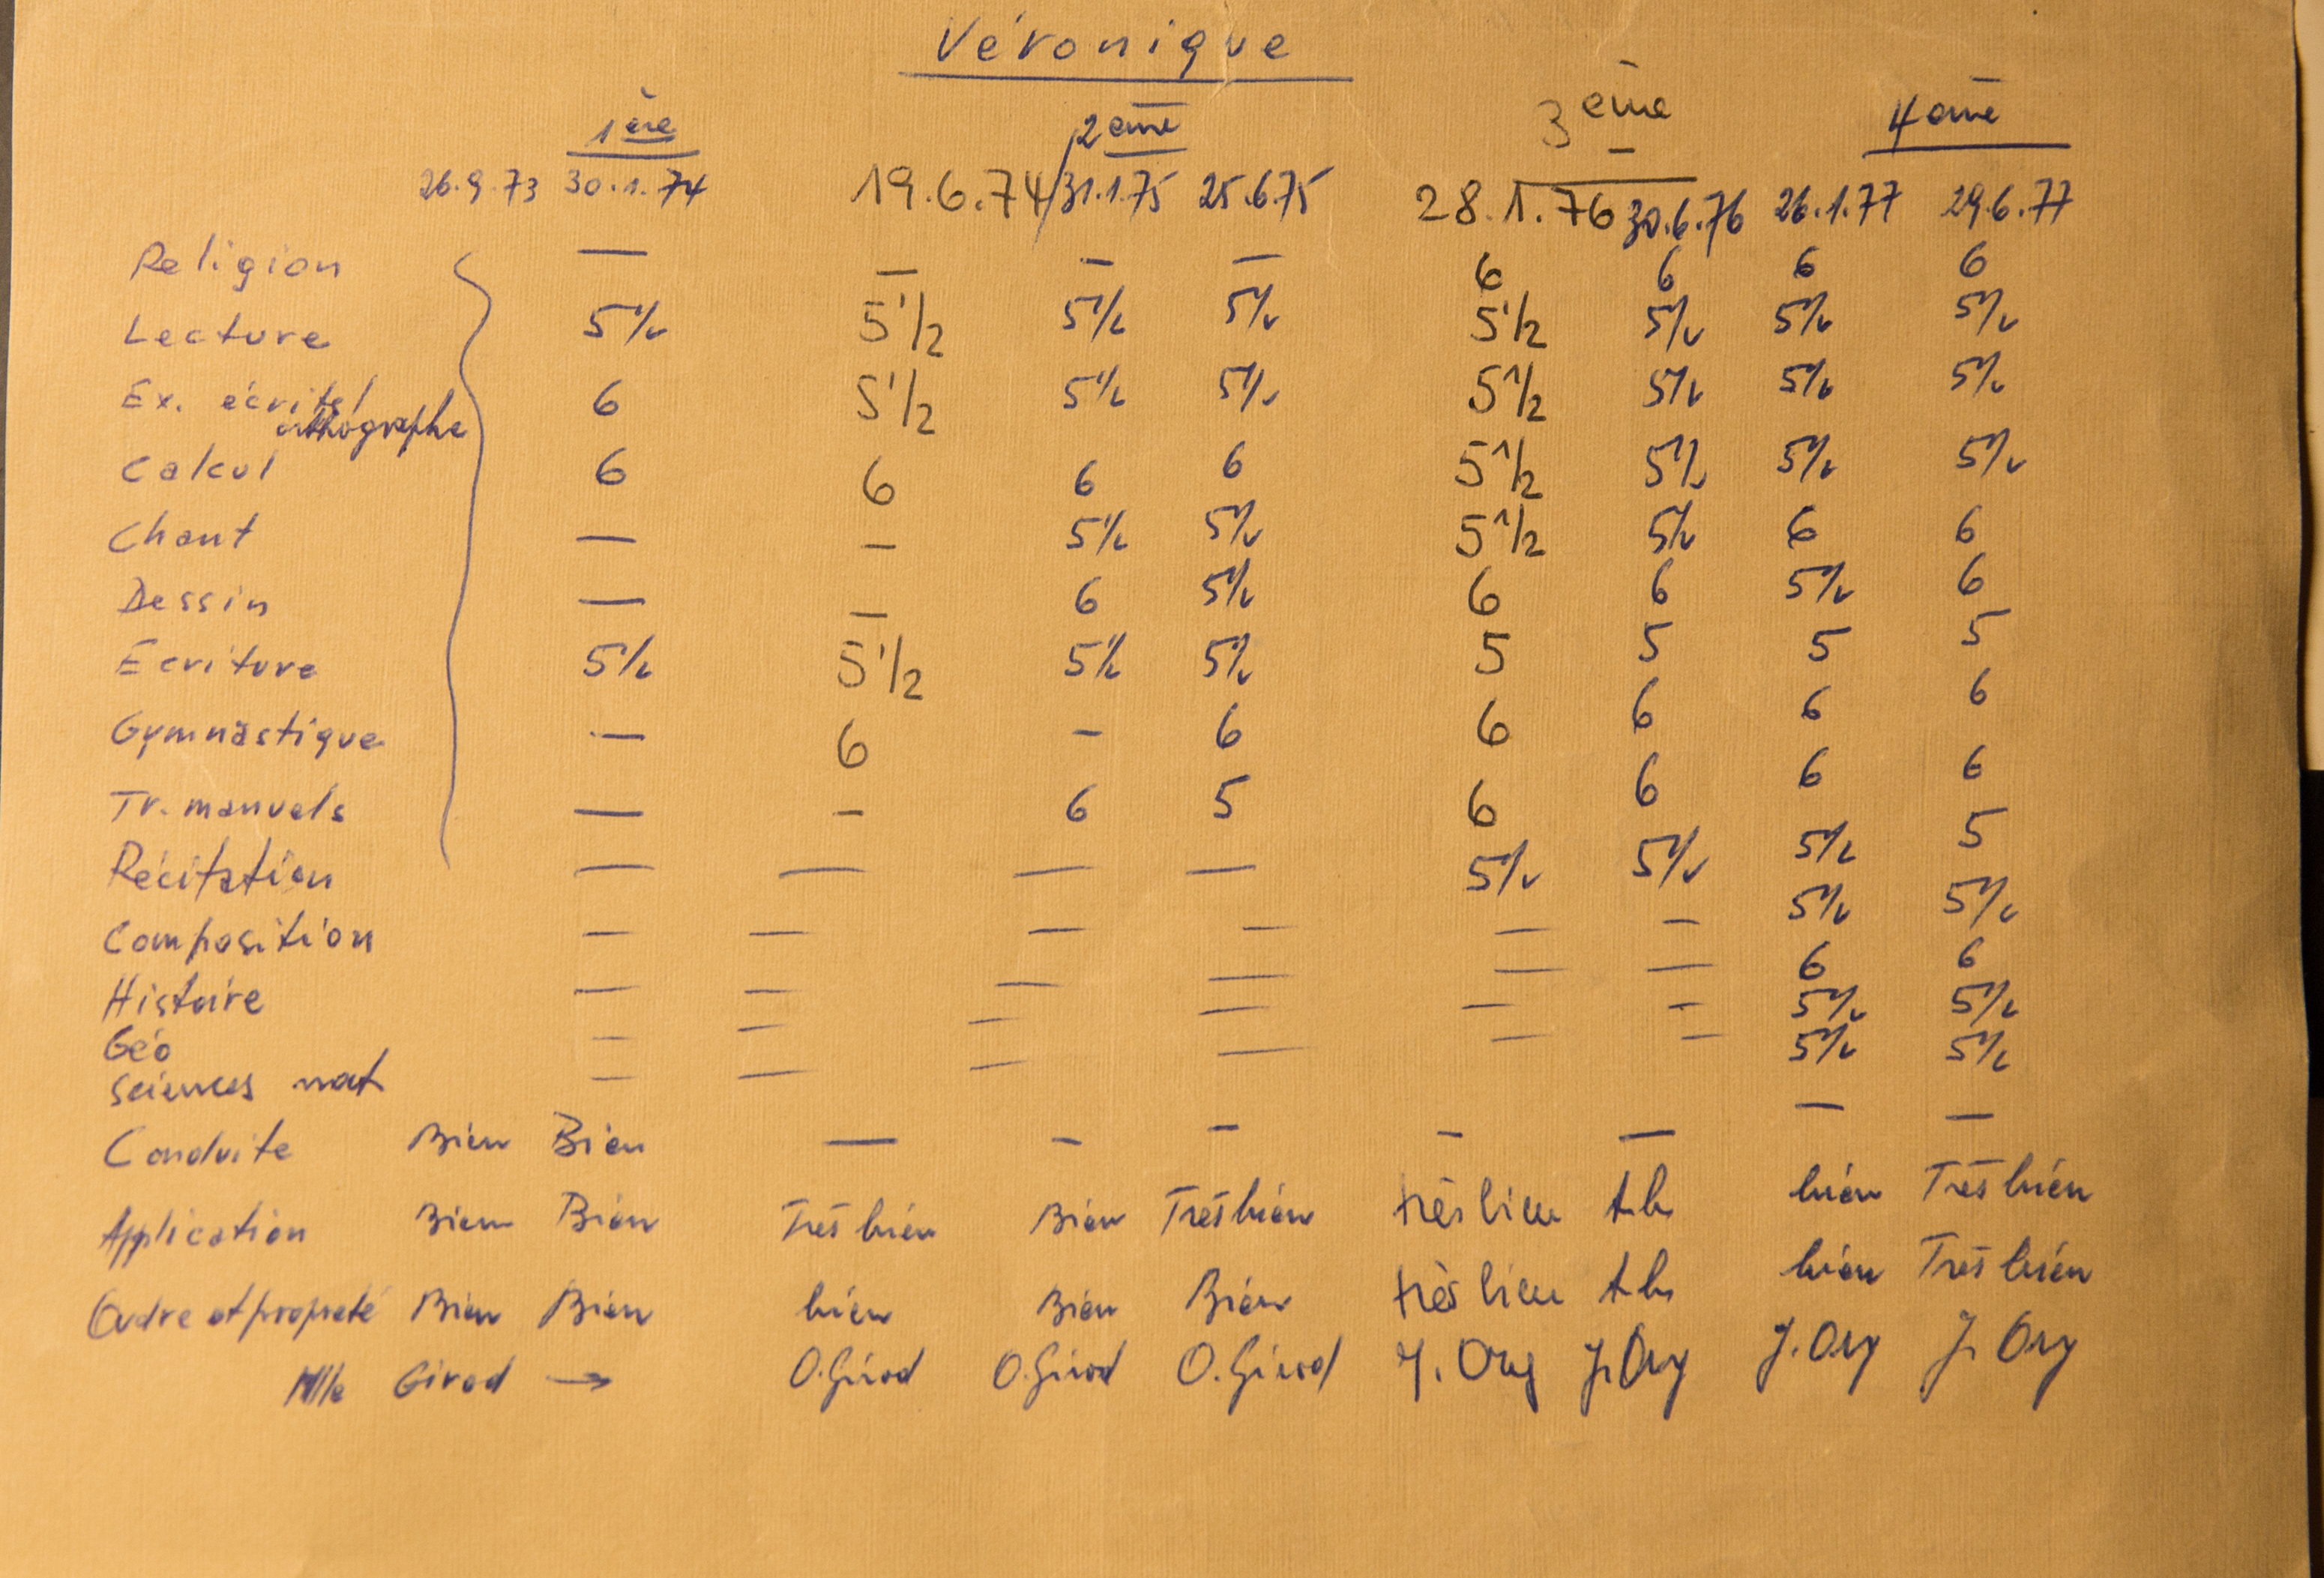 Véronique
1ère 2ème 3ème 4ème
26.9.73 30.1.74 19.6.74 / 31.1.75 25.6.75 28.1.76 30.6.76 26.1.77 29.6.77
Religion — — — — 6 6 6 6
Lecture 5 1/2 5 1/2 5 1/2 5 1/2 5 1/2 5 1/2 5 1/2 5 1/2
Ex. écrits/ 6 5 1/2 5 1/2 5 1/2 5 1/2 5 1/2 5 1/2 5 1/2
orthographe
Calcul 6 6 6 6 5 1/2 5 1/2 5 1/2 5 1/2
Chant — — 5 1/2 5 1/2 5 1/2 5 1/2 6 6
Dessin — — 6 5 1/2 6 6 5 1/2 6
Ecriture 5 1/2 5 1/2 5 1/2 5 1/2 5 5 5 5
Gymnastique — 6 — 6 6 6 6 6
Tr. manuels — — 6 5 6 6 6 6
Récitation — — — — 5 1/2 5 1/2 5 1/2 5
Composition — — — — — — 5 1/2 5 1/2
Histoire — — — — — — 6 6
Géo — — — — — — 5 1/2 5 1/2
Sciences nat — — — — — — 5 1/2 5 1/2
Conduite Bien Bien — — — — — — —
Application Bien Bien Très bien Bien Très bien très bien t.b. bien Très bien
Ordre et propreté Bien Bien bien Bien Bien très bien t.b. bien Très bien
Mlle Girod → O. Girod O. Girod O. Girod J. Ory J. Ory J. Ory J. Ory